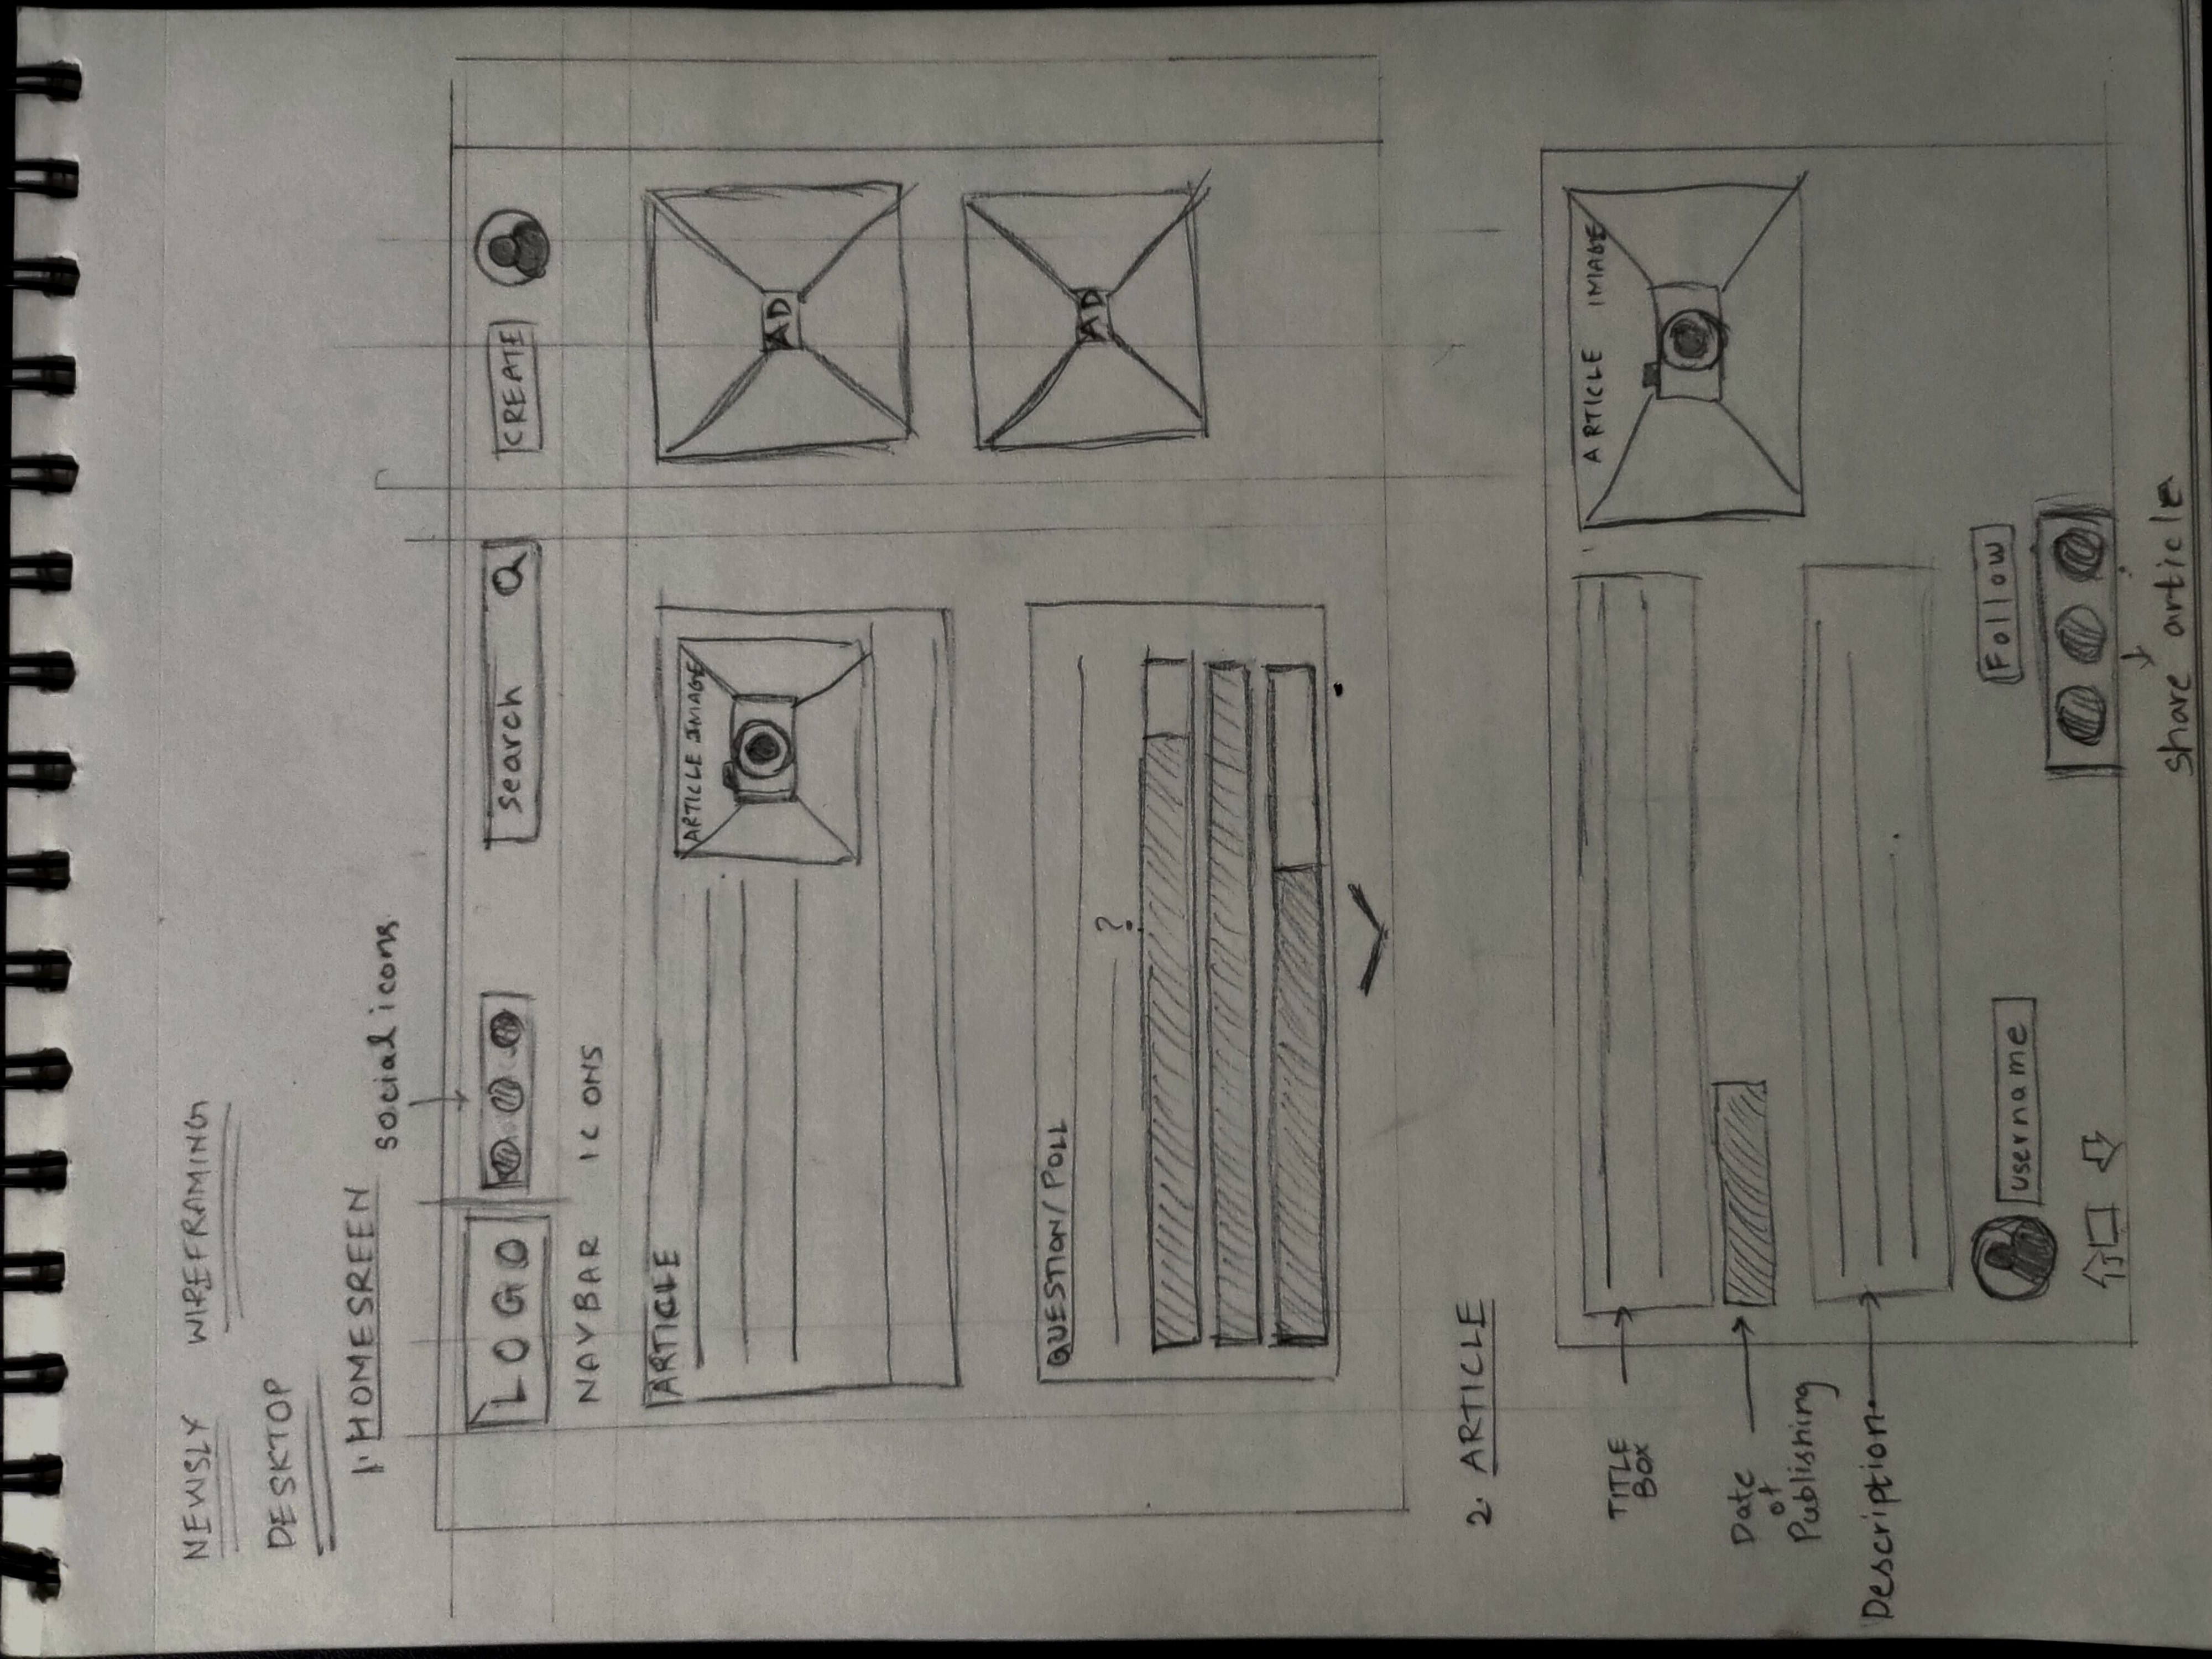 NEWSLY WIREFRAMING
DESKTOP
1. HOMESREEN
social icons
LOGO
search
CREATE
NAVBAR ICONS
ARTICLE
ARTICLE IMAGE
AD
QUESTION/POLL
?
AD
2. ARTICLE
TITLE
BOX
ARTICLE IMAGE
Date
of
Publishing
Description
username
Follow
share article